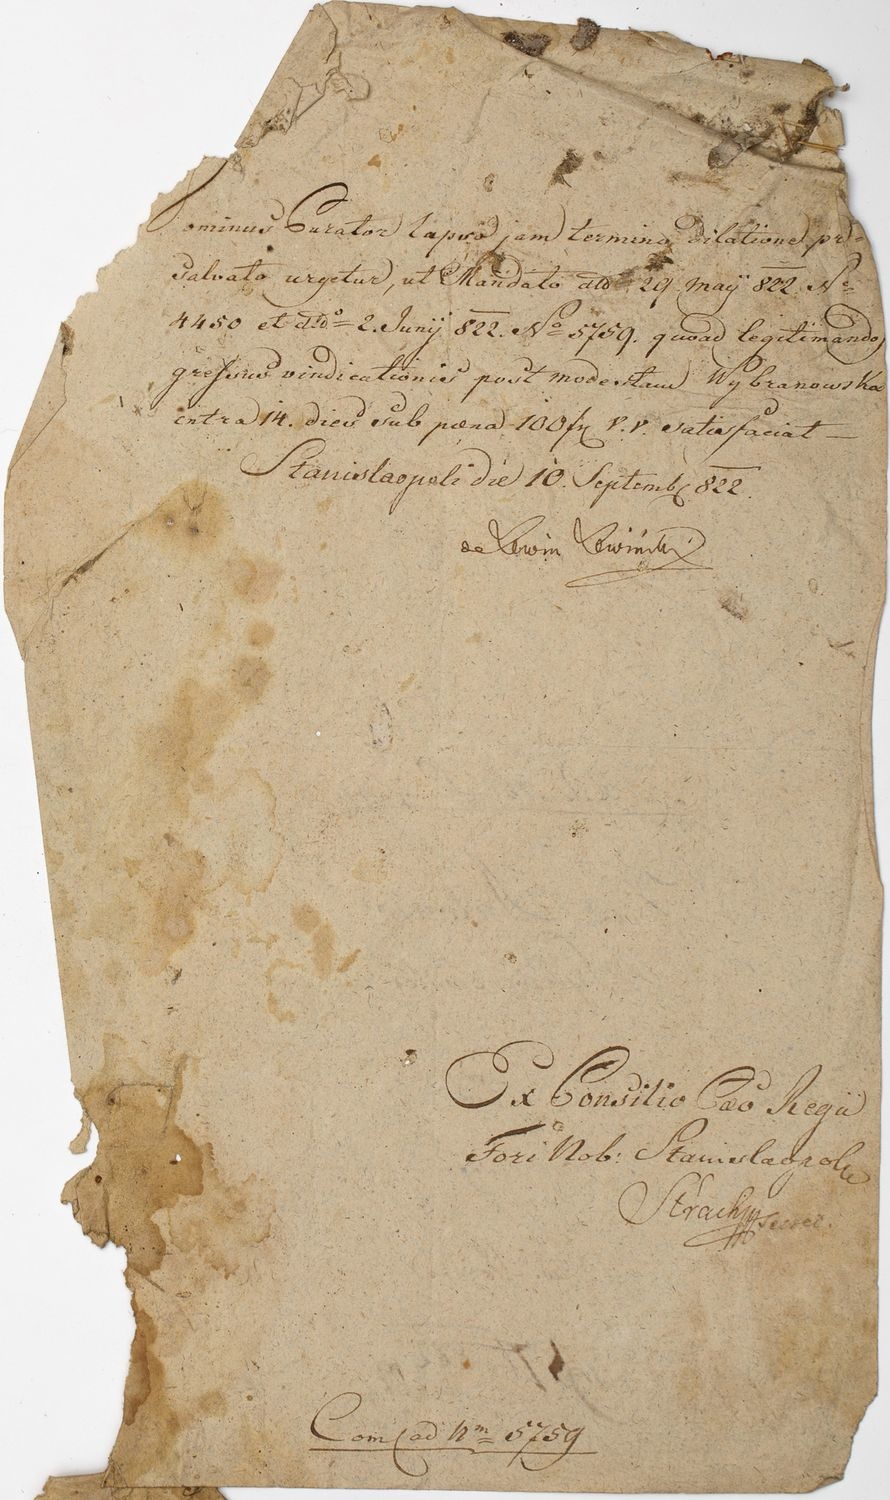 Dominus Curator lapso jam termino dilatione pr=
salvato urgetur, ut Mandato dtto 29 Maÿ 822 No
4450 et dtdo 2. Junÿ 822. No 5759. quoad legitimando
gressus vindicationis post modestam Wybranowska
intra 14. dies sub poena 100 fx V. V. satisfaciat —
Stanislaopoli die 10. Septembr 822.
de Lewin Lewinski
Ex Consilio Caeo Regii
Fori Nob: Stanislaopoli
Strachÿ
Com ad Nm 5759